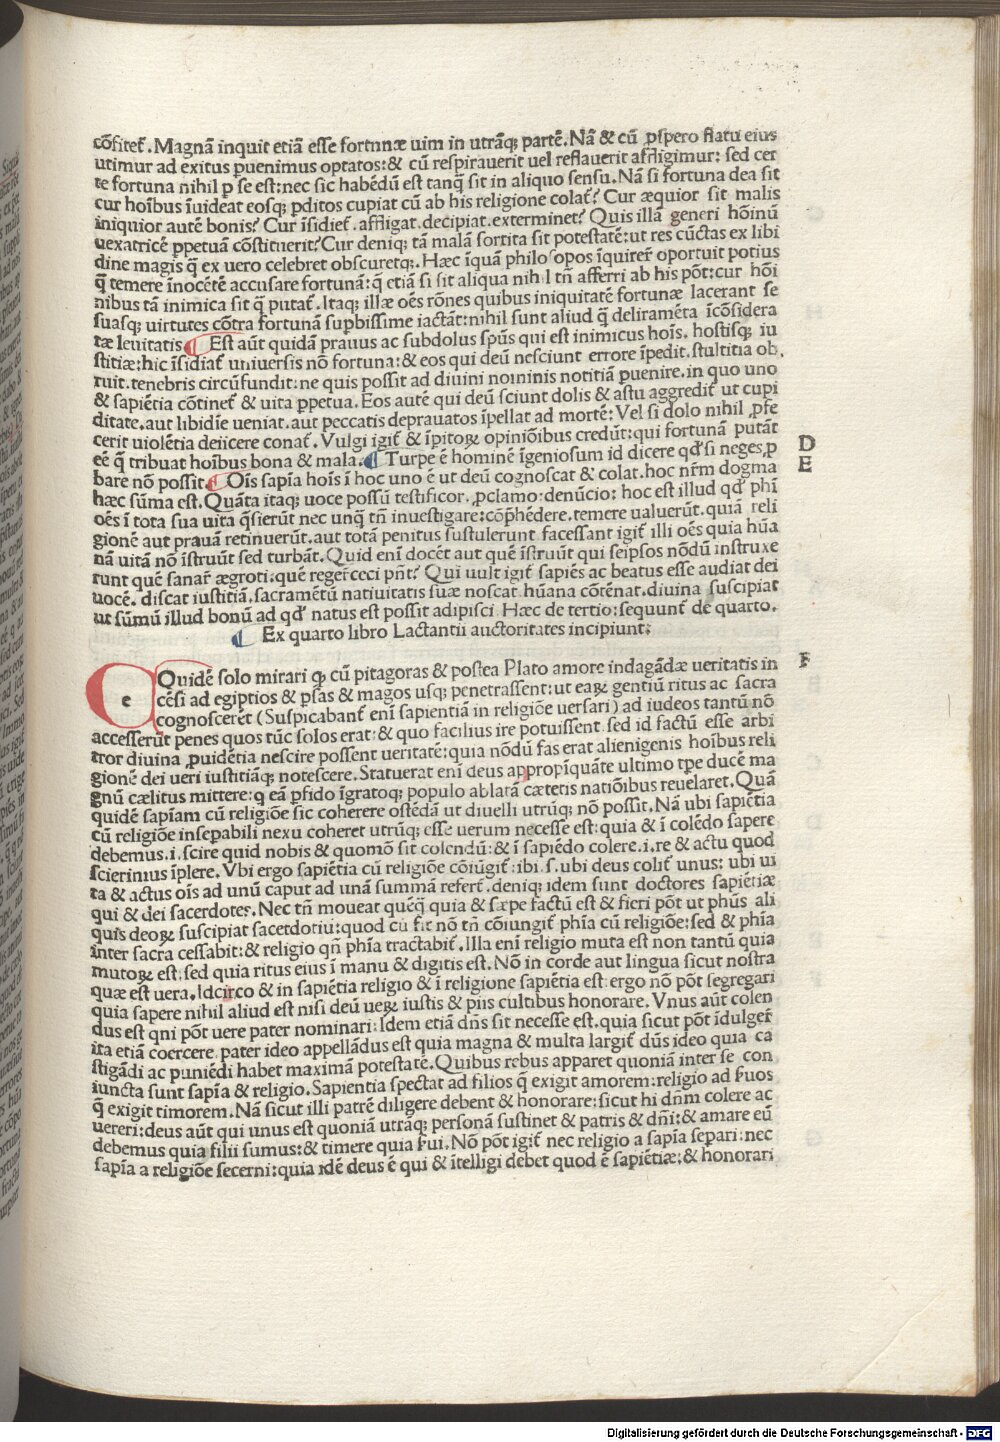 cõfitet᷑. Magnã inquit etiã esse fortnnæ uim in utrãq; partẽ. Nã & cũ ꝓspero flatu eius
utimur ad exitus ꝑuenimus optatos: & cũ respirauerit uel reflauerit affligimur: sed cer
te fortuna nihil ꝑ se est: nec sic habẽdũ est tanq̃ sit in aliquo sensu. Nã si fortuna dea sit
cur hoĩbus ĩuideat eosq; ꝑditos cupiat cũ ab his religione colat᷑? Cur æquior sit malis
iniquior autẽ bonis? Cur ĩsidiet᷑. affligat. decipiat. exterminet? Quis illã generi hõinũ
uexatricẽ ꝑpetuã cõstituerit? Cur deniq; tã malã sortita sit potestatẽ: ut res cũctas ex libi
dine magis q̃ ex uero celebret obscuretq;. Hæc ĩquã philosopos ĩquirer᷑ oportuit potius
q̃ temere ĩnocẽtẽ accusare fortunã: q̃ etiã si sit aliqua nihil tñ afferri ab his põt: cur hõi
nibus tã inimica sit q̃ putat᷑. Itaq; illæ oẽs rõnes quibus iniquitatẽ fortunæ lacerant se
suasq; uirtutes cõtra fortunã supbissime iactãt: nihil sunt aliud q̃ deliramẽta ĩcõsidera
tæ leuitatis. Est aũt quidã prauus ac subdolus spũs qui est inimicus hoĩs. hostisq; iu
stitiæ: hic ĩsidiat᷑ uniuersis nõ fortuna: & eos qui deũ nesciunt errore ĩpedit. stultitia ob,
ruit. tenebris circũfundit: ne quis possit ad diuini nominis notitiã ꝑuenire. in quo uno
& sapiẽtia cõtinet᷑ & uita ꝑpetua. Eos autẽ qui deũ sciunt dolis & astu aggredit᷑ ut cupi
ditate. aut libidĩe ueniat. aut peccatis deprauatos ĩpellat ad mortẽ: Vel si dolo nihil ꝓfe
cerit uiolẽtia deiicere conat᷑. Vulgi igit᷑ & ĩpitoꝝ opiniõibus credũt: qui fortunã putãt
eẽ q̃ tribuat hoĩbus bona & mala. Turpe ẽ hominẽ ĩgeniosum id dicere qđ si neges, ꝓ
bare nõ possit. Oĩs sapĩa hoĩs ĩ hoc uno ẽ ut deũ cognoscat & colat. hoc nr̃m dogma
hæc sũma est. Quãta itaq; uoce possũ testificor. ꝓclamo: denũcio: hoc est illud qđ phĩ
oẽs ĩ tota sua uita q̃sierũt nec unq̃ tñ inuestigare: cõp̃hẽdere. temere ualuerũt. quiã reli
gionẽ aut prauã retinuerũt. aut totã penitus sustulerunt facessant igit᷑ illi oẽs quia hũa
nã uitã nõ ĩstruũt sed turbãt. Quid enĩ docẽt aut quẽ ĩstruũt qui seipsos nõdũ instruxe
runt quẽ sanar᷑ ægroti: quẽ reger᷑ ceci pñt? Qui uult igit᷑ sapiẽs ac beatus esse audiat dei
uocẽ. discat iustitiã. sacramẽtũ natiuitatis suæ noscat hũana cõtẽnat. diuina suscipiat
ut sũmũ illud bonũ ad qđ natus est possit adipisci Hæc de tertio: sequunt᷑ de quarto.
Ex quarto libro Lactantii auctoritates incipiunt:
D
E
F
e Quidẽ solo mirari ꝙ cũ pitagoras & postea Plato amore indagãdæ ueritatis in
cẽsi ad egiptios & ꝑsas & magos usq; penetrassent: ut eaꝝ gentiũ ritus ac sacra
cognosceret (Suspicabant᷑ enĩ sapientiã in religiõe uersari) ad iudeos tantũ nõ
accesserũt penes quos tũc solos erat: & quo facilius ire potuissent. sed id factũ esse arbi
tror diuina ꝓuidẽtia nescire possent ueritatẽ: quia nõdũ fas erat alienigenis hoĩbus reli
gionẽ dei ueri iustitiãq; notescere. Statuerat enĩ deus appropĩquãte ultimo tꝑe ducẽ ma
gnũ cælitus mittere: q eã ꝑfido ĩgratoq; populo ablatã cætetis natiõibus reuelaret. Quã
quidẽ sapiam cũ religiõe sic coherere ostẽdã ut diuelli utrũq; nõ possit. Nã ubi sapiẽtia
cũ religiõe insepabili nexu coheret utrũq; esse uerum necesse est: quia & ĩ colẽdo sapere
debemus. i. scire quid nobis & quomõ sit colendũ: & ĩ sapiẽdo colere. i. re & actu quod
scierinius ĩplere. Vbi ergo sapiẽtia cũ religiõe cõiũgit᷑: ibi. s. ubi deus colit᷑ unus: ubi ui
ta & actus oĩs ad unũ caput ad unã summã refert᷑. deniq; idem sunt doctores sapiẽtiæ
qui & dei sacerdotes. Nec tñ moueat quẽq̃ quia & sæpe factũ est & fieri põt ut phũs ali
quis deoꝝ suscipiat sacetdotiũ: quod cũ fit nõ tñ cõiungit᷑ phĩa cũ religiõe: sed & phĩa
inter sacra cessabit: & religio qñ phĩa tractabit᷑. Illa enĩ religio muta est non tantũ quia
mutoꝝ est: sed quia ritus eius ĩ manu & digitis est. Nõ in corde aut lingua sicut nostra
quæ est uera. Idcirco & in sapiẽtia religio & ĩ religione sapiẽtia est: ergo nõ põt segregari
quia sapere nihil aliud est nisi deũ ueꝝ iustis & piis cultibus honorare. Vnus aũt colen
dus est qni põt uere pater nominari: Idem etiã dñs sit necesse est. quia sicut põt ĩdulger᷑
ita etiã coercere. pater ideo appellãdus est quia magna & multa largit᷑ dũs ideo quia ca
stigãdi ac puniẽdi habet maximã potestatẽ. Quibus rebus apparet quoniã inter se con
iuncta sunt sapĩa & religio. Sapientia spectat ad filios q̃ exigit amorem: religio ad ſ̃uos
q̃ exigit timorem. Nã sicut illi patrẽ diligere debent & honorare: sicut hi dñm colere ac
uereri: deus aũt qui unus est quoniã utrãq; personã sustinet & patris & dñi: & amare eũ
debemus quia filii sumus: & timere quia ſ̃ui. Nõ põt igit᷑ nec religio a sapĩa separi: nec
sapĩa a religiõe secerni: quia idẽ deus ẽ qui & ĩtelligi debet quod ẽ sapiẽtiæ: & honorari
Digitalisierung gefördert durch die Deutsche Forschungsgemeinschaft - DFG